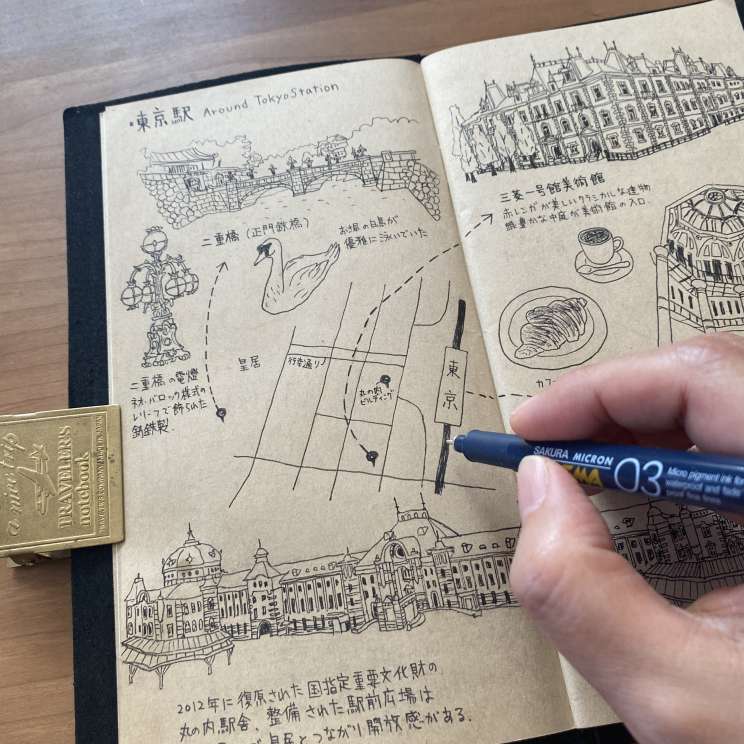 ・東京駅 Around TokyoStation
二重橋 (正門鉄橋)
お堀の白鳥が
優雅に泳いでいた
二重橋の電燈
ネオ・バロック様式の
レリーフで飾られた
鋳鉄製.
皇居
行幸通り
丸の内
ビルディング
東京
2012年に復原された国指定重要文化財の
丸の内駅舎、整備された駅前広場は
皇居とつながり開放感がある.
三菱一号館美術館
赤レンガが美しいクラシカルな建物
緑豊かな中庭が美術館の入口.
カフェ
a nice trip
TRAVELER'S
notebook
SAKURA MICRON
03
Micro pigment ink for
waterproof and fade
proof lines